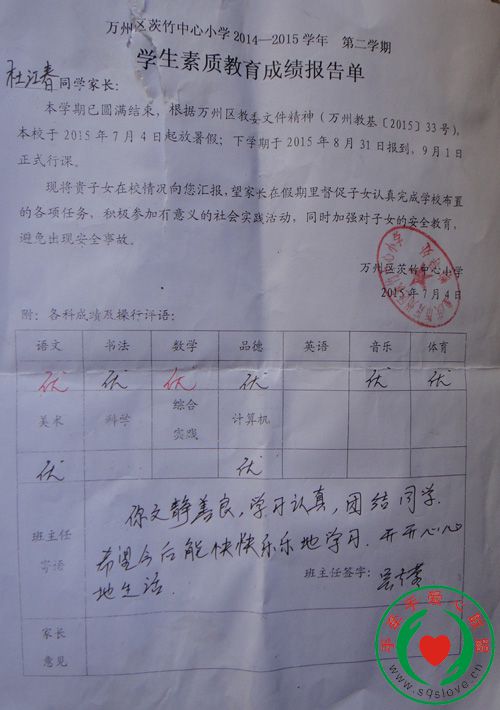 万州区茨竹中心小学2014—2015学年 第二学期
学生素质教育成绩报告单
杜江春同学家长：
本学期已圆满结束，根据万州区教委文件精神（万州教基〔2015〕33号），
本校于2015年7月4日起放暑假；下学期于2015年8月31日报到，9月1日
正式行课。
现将贵子女在校情况向您汇报，望家长在假期里督促子女认真完成学校布置
的各项任务，积极参加有意义的社会实践活动，同时加强对子女的安全教育，
避免出现安全事故。
万州区茨竹中心小学
2015年7月4日
附：各科成绩及操行评语：
语文 书法 数学 品德 英语 音乐 体育
优 优 优 优 优 优
美术 科学 综合实践 计算机
优 优
班主任寄语
你文静善良，学习认真，团结同学.
希望今后能快快乐乐地学习.开开心心
地生活.
班主任签字：
家长意见
www.sqslove.cn